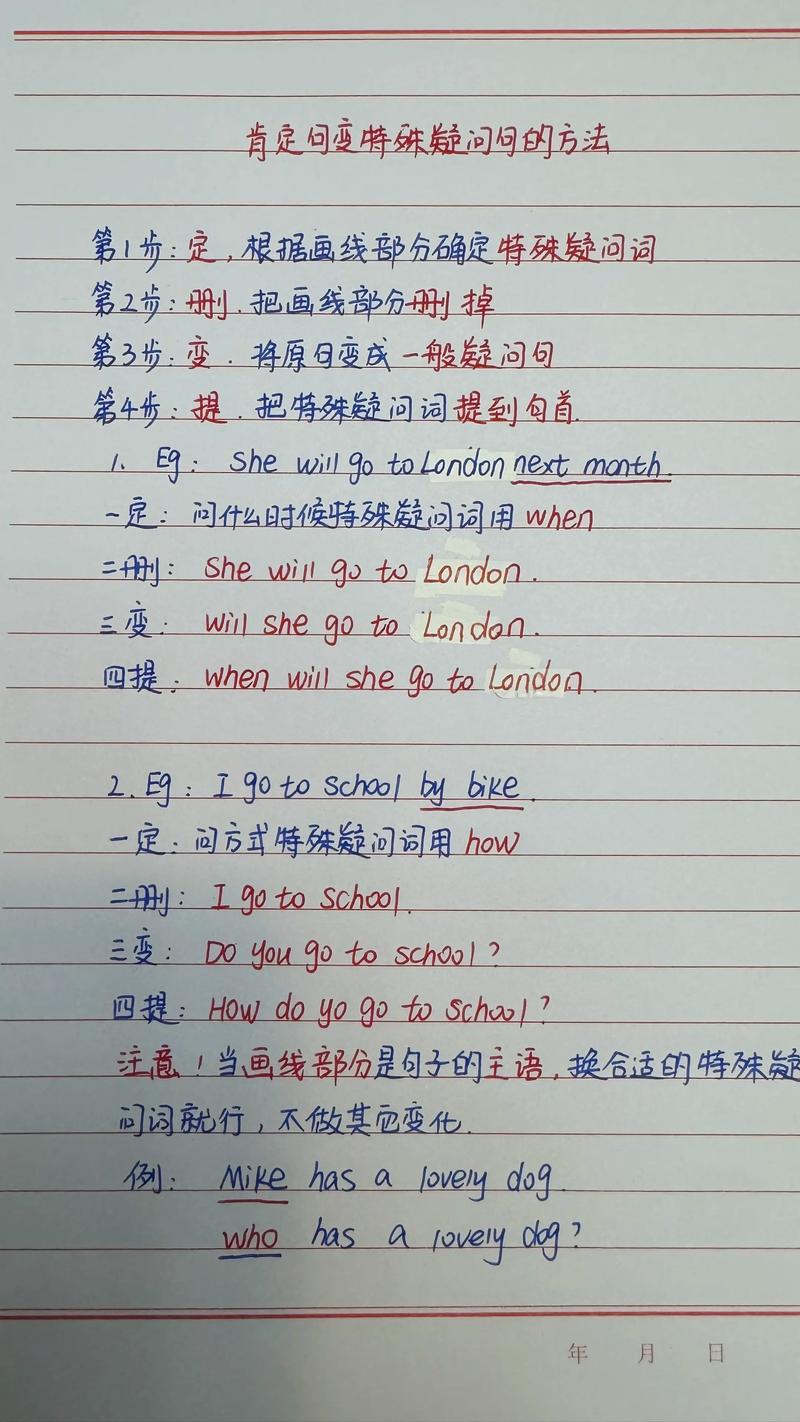 肯定句变特殊疑问句的方法
第1步：定，根据画线部分确定特殊疑问词
第2步：删．把画线部分删掉
第3步：变．将原句变成一般疑问句
第4步：提．把特殊疑问词提到句首．
1. Eg： She will go to London next month.
一定：问什么时候特殊疑问词用 when
二删： She will go to London.
三变： will she go to London.
四提： when will she go to London.
2. Eg： I go to school by bike.
一定：问方式特殊疑问词用 how
二删： I go to school.
三变： Do you go to school?
四提： How do yo go to school?
注意！当画线部分是句子的主语，换合适的特殊疑
问词就行，不做其它变化．
例： Mike has a lovely dog.
who has a lovely dog?
年 月 日